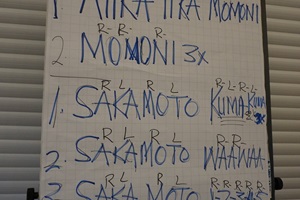 1 MIIKA IIKA MOMONI
R- R- R-
2 MOMONI 3x
R L R L R-L-R-L
1. SAKAMOTO KUMA-KUMA
R L R L R- R-
2. SAKAMOTO WAAWAA-
R L R L R-R-R-R-R
3 SAKAMOTO 1-2-3-4-5